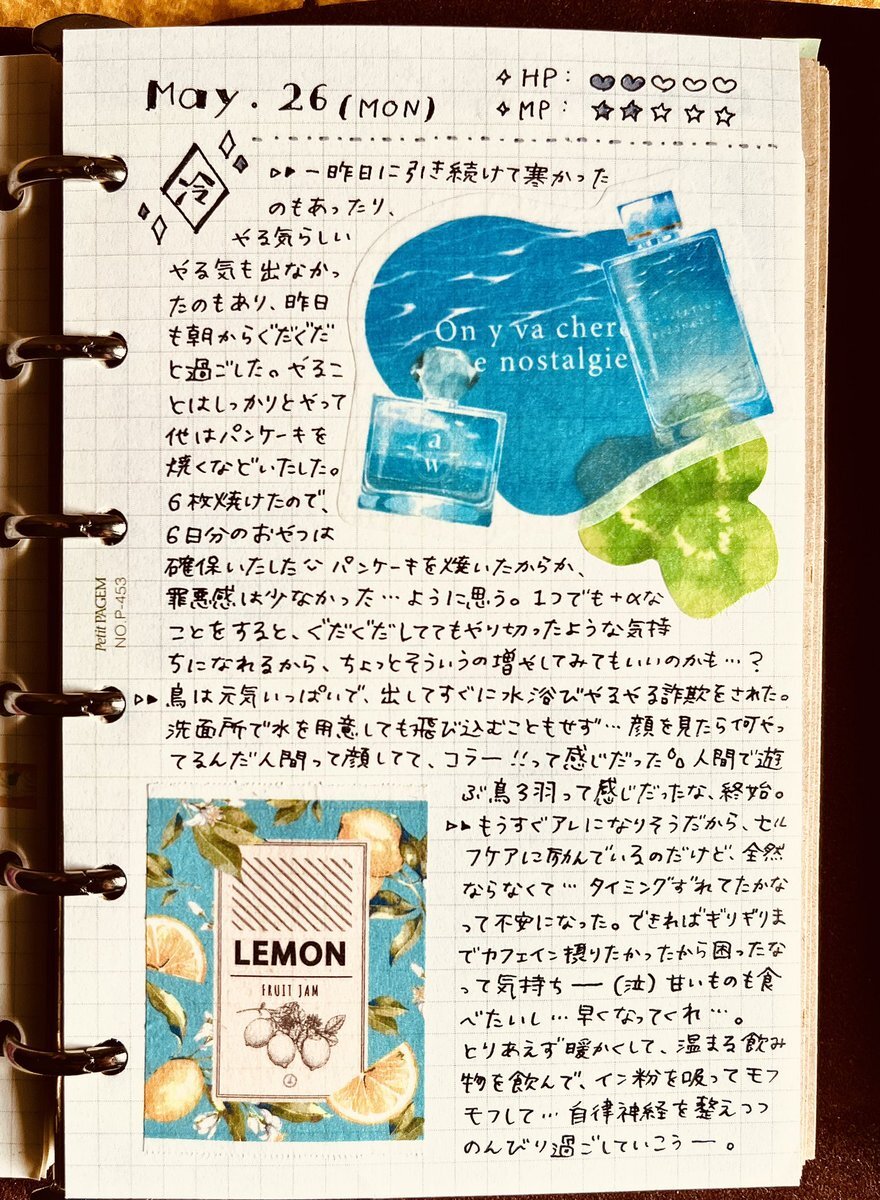 May. 26 (MON)
✧ HP: ♥♥♡♡♡
✧ MP: ★★☆☆☆
冷
▷▶ 一昨日に引き続けて寒かった
のもあったり、
やる気らしい
やる気も出なかっ
たのもあり、昨日
も朝からぐだぐだ
と過ごした。やるこ
とはしっかりとやって
他はパンケーキを
焼くなどいたした。
6枚焼けたので、
6日分のおやつは
確保いたした パンケーキを焼いたからか、
罪悪感は少なかった…ように思う。1つでも+αな
ことをすると、ぐだぐだしててもやり切ったような気持
ちになれるから、ちょっとそういうの増やしてみてもいいのかも…?
▷▶ 鳥は元気いっぱいで、出してすぐに水浴びやるやる詐欺をされた。
洗面所で水を用意しても飛び込むこともせず…顔を見たら何やっ
てるんだ人間って顔してて、コラー!!って感じだった。人間で遊
ぶ鳥3羽って感じだったな、終始。
▷▶ もうすぐアレになりそうだから、セル
フケアに励んでいるのだけど、全然
ならなくて…タイミングずれてたかな
って不安になった。できればギリギリま
でカフェイン摂りたかったから困ったな
って気持ちー(泣)甘いものも食
べたいし…早くなってくれ…。
とりあえず暖かくして、温まる飲み
物を飲んで、イン粉を吸ってモフ
モフして…自律神経を整えつつ
のんびり過ごしていこうー。
On y va cher
e nostalgie
a
w
LEMON
FRUIT JAM
Petit PAGEM
NO.P-453